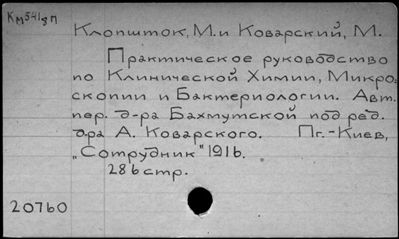 Км541дп
Клопшток, М. и Коварский, М.
Практическое руководство
по Клинической Химии, Микро-
скопии и Бактериологии. Авт.
пер. д-ра Бахмутской под ред.
д-ра А. Коварского. Пг.-Киев,
„Сотрудник" 1916.
286 стр.
20760